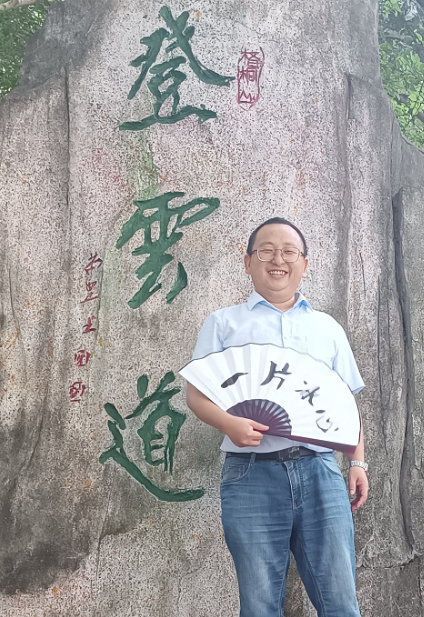 登雲道
一片冰心